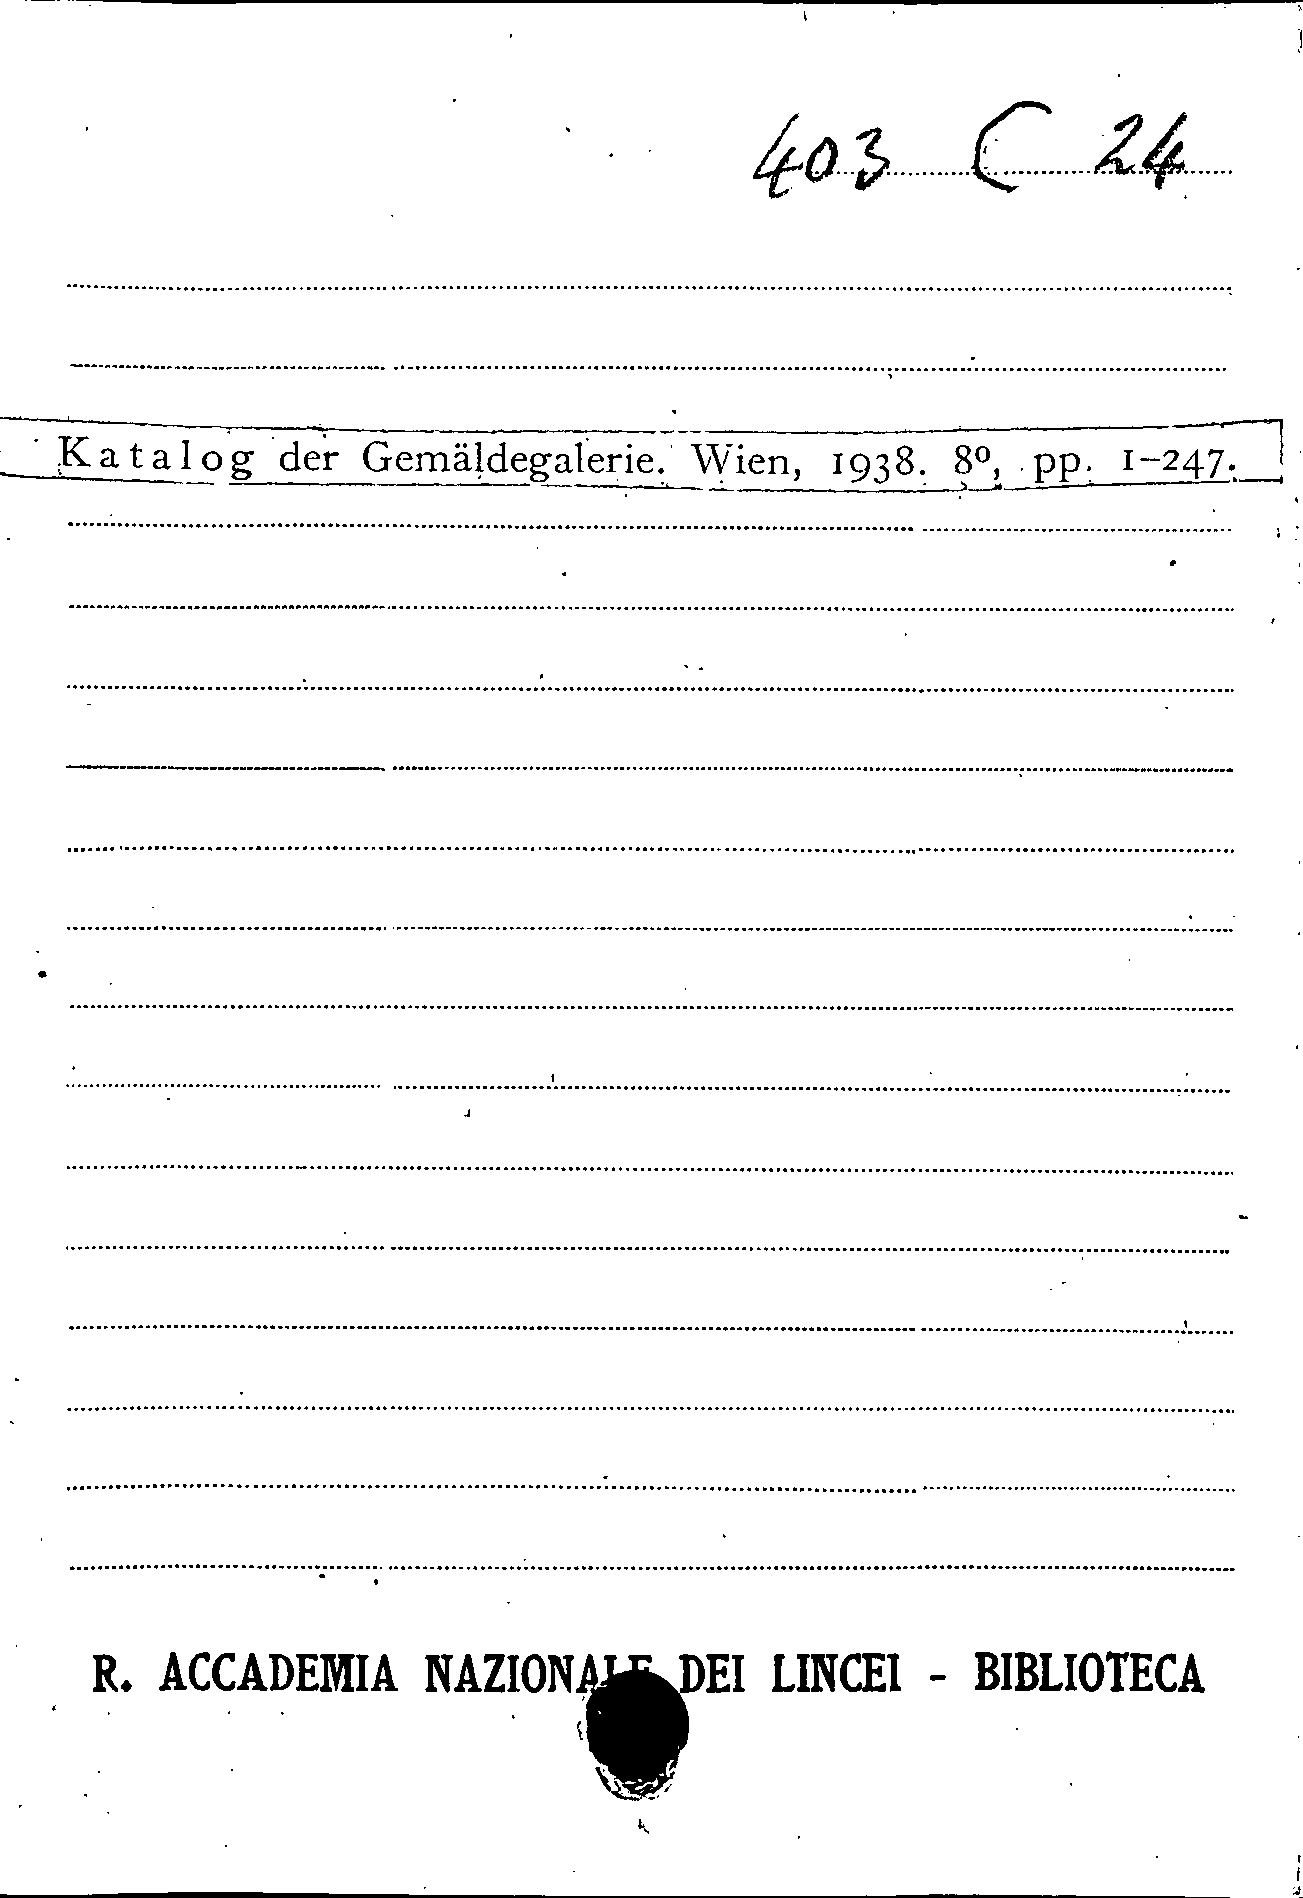 403 C 24
Katalog der Gemäldegalerie. Wien, 1938. 8º, pp. 1-247.
R. ACCADEMIA NAZIONALE DEI LINCEI - BIBLIOTECA